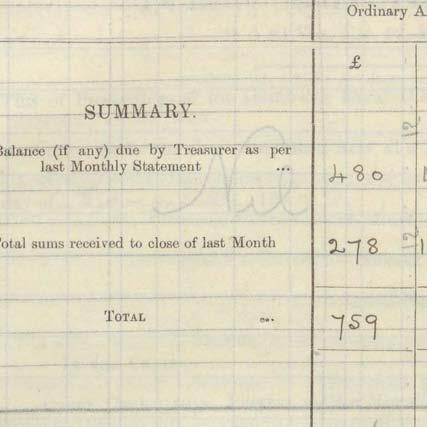 Ordinary A
£
SUMMARY.
Balance (if any) due by Treasurer as per
last Monthly Statement ... 480
Nil
Total sums received to close of last Month 278
TOTAL ... 759